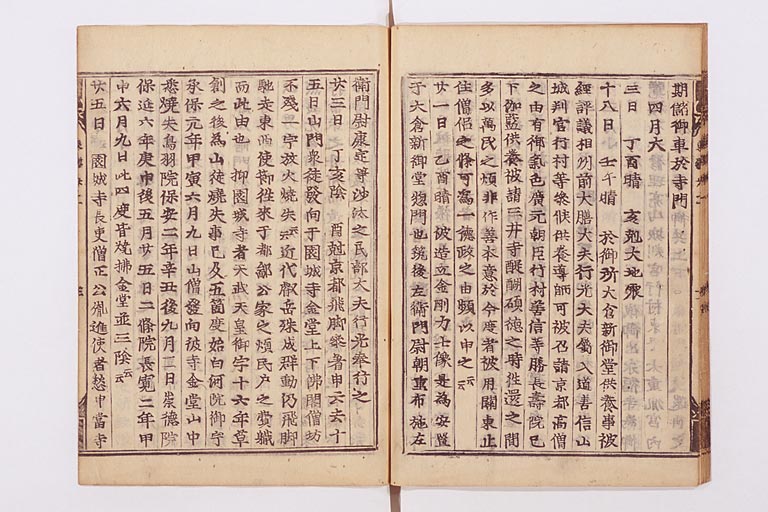 期儲御車於寺門
四月大
三日 丁酉晴 亥尅大地震
十八日 壬午晴 於御所大倉新御堂供養事被
経評議相州前大膳大夫行光大夫属入道善信山
城判官行村等参候供養導師可被召請京都高僧
之由有御氣色廣元朝臣行村善信等勝長壽院已
下伽藍供養被請三井寺醍醐碩徳之時往還之間
多以萬民之煩非作善本意於今度者被用關東止
住僧侶之條可為一徳政之由頻以申之云云
廿一日 乙酉晴 被造立金剛力士像是為安置
于大倉新御堂惣門也筑後左衛門尉朝重布施左
衛門尉康定等沙汰之民部大夫行光奉行之
廿三日 丁亥陰 酉尅京都飛脚参著申云去十
五日山門衆徒發向于園城寺金堂上下佛閣僧坊
不残一宇放火焼失云云近代叡岳殊成群動仍飛脚
馳走東西使節往來于都鄙公家之煩民戸之費職
而此由也抑園城寺者天武天皇御宇十六年草
創之後為山徒焼失事已及五箇度始白河院御宇
永保元年甲寅六月九日山僧發向彼寺金堂山中
悉焼失鳥羽院保安二年辛丑後九月三日崇德院
保延六年庚申後五月廿五日二條院長寛二年甲
申六月九日此四度皆焼拂金堂並三院云云
廿五日 園城寺長吏僧正公胤進使者愁申當寺